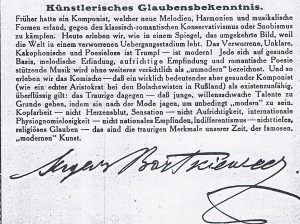 Künstlerisches Glaubensbekenntnis.
Früher hatte ein Komponist, welcher neue Melodien, Harmonien und musikalische
Formen erfand, gegen den klassisch-romantischen Konservativismus oder Snobismus
zu kämpfen. Heute erleben wir, wie in einem Spiegel, das umgekehrte Bild, weil
die Welt in einem verworrenen Uebergangsstadium lebt. Das Verworrene, Unklare,
Kakophonische und Poesielose ist Trumpf — ist modern! Jede sich auf gesunde
Basis, melodische Erfindung, aufrichtige Empfindung und romantische Poesie
stützende Musik wird ohne weiteres verächtlich als „unmodern" bezeichnet. Und so
erleben wir das Komische — daß ein wirklich bedeutender aber gesunder Komponist
(wie ein echter Aristokrat bei den Bolschewisten in Rußland) als existenzunfähig,
überflüssig gilt: das Traurige dagegen — daß junge, willensschwache Talente zu
Grunde gehen, indem sie nach der Mode jagen, um unbedingt „modern" zu sein.
Kopfarbeit — nicht Herzensblut, Sensation — nicht Aufrichtigkeit, internationale
Physiognomielosigkeit — nicht nationales Empfinden, Indifferentismus — nicht tiefes,
religiöses Glauben — das sind die traurigen Merkmale unserer Zeit, der famosen,
„modernen" Kunst.
Sergei Bortkiewicz